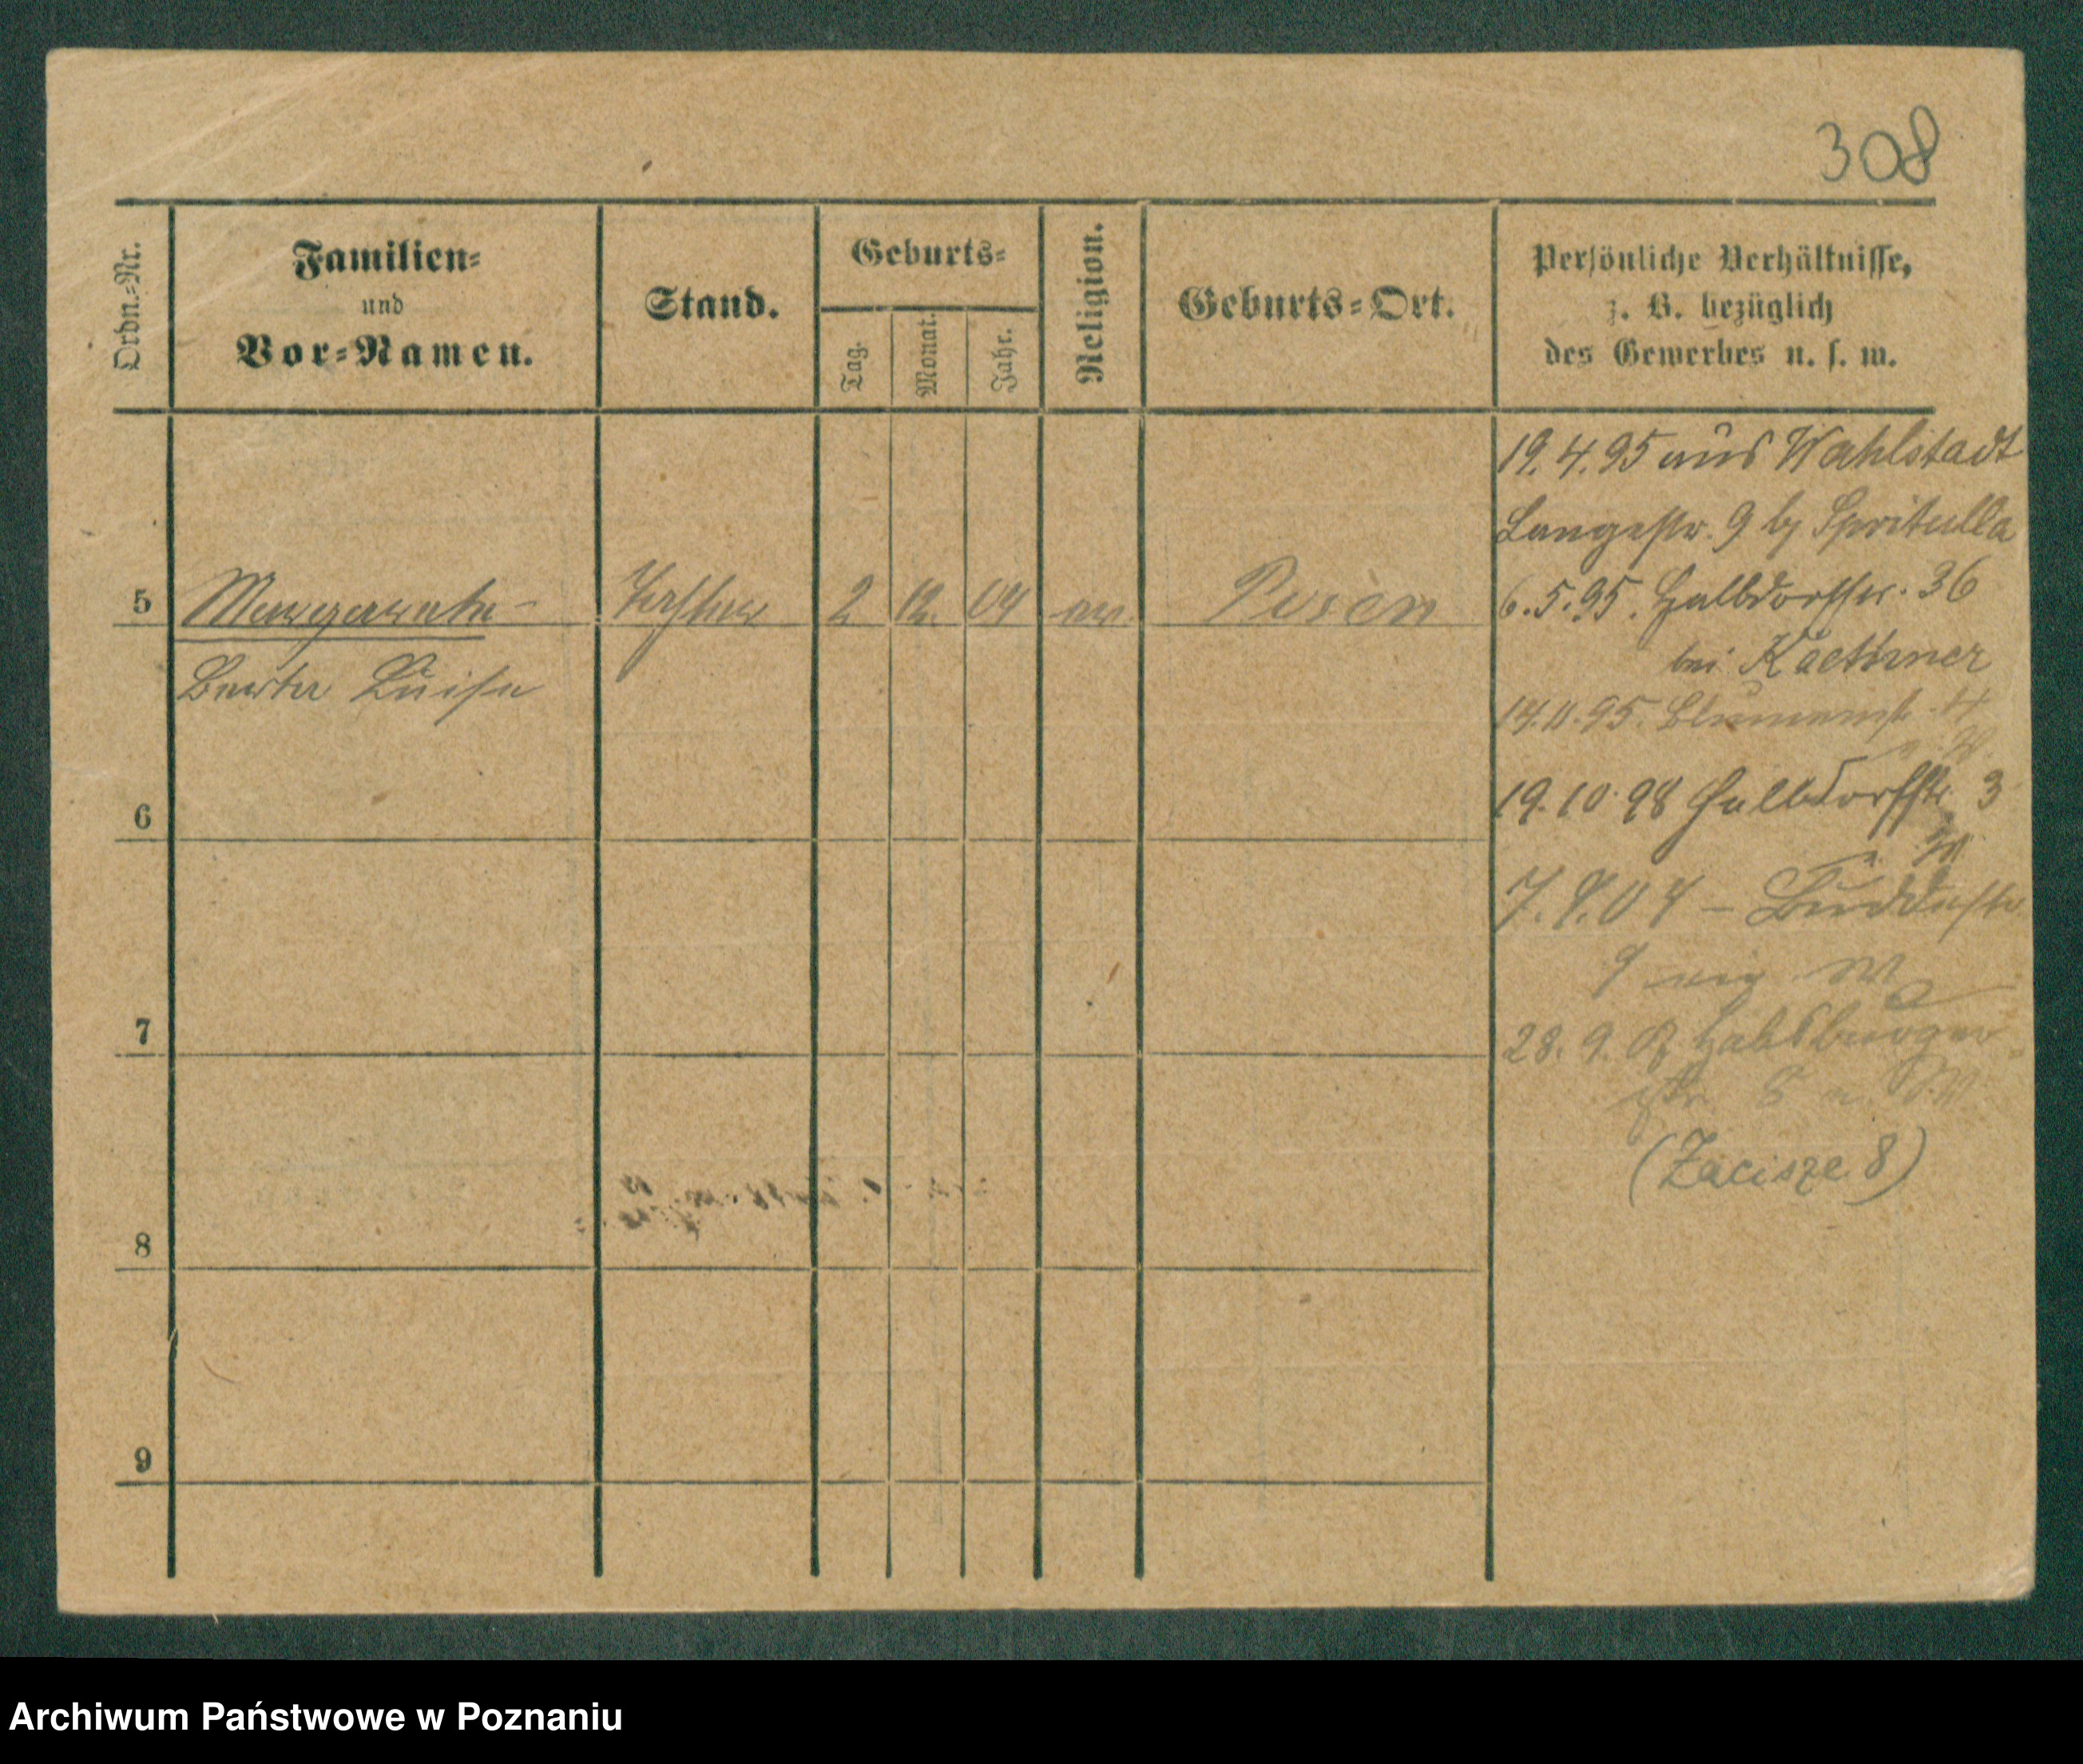 308
Ordn.-Nr.
Familien-
und
Vor-Namen.
Stand.
Geburts-
Tag.
Monat.
Jahr.
Religion.
Geburts-Ort.
Persönliche Verhältnisse,
z. B. bezüglich
des Gewerbes u. s. w.
5
Margarete
Berta Luise
Tochter
2
12.
04
ev.
Posen
19. 4. 95 aus Wahlstadt
Langestr. 9 bj Spritulla
6. 5. 95. Halbdorfstr. 36
bei Kaethner
14. 11. 95. Blumenstr. 4
19. 10. 98 Halbdorfstr. 3
7. 9. 04 - Buddestr
9
28. 9. Habsburger
str. 8
(Zacisze 8)
6
7
8
9
Archiwum Państwowe w Poznaniu